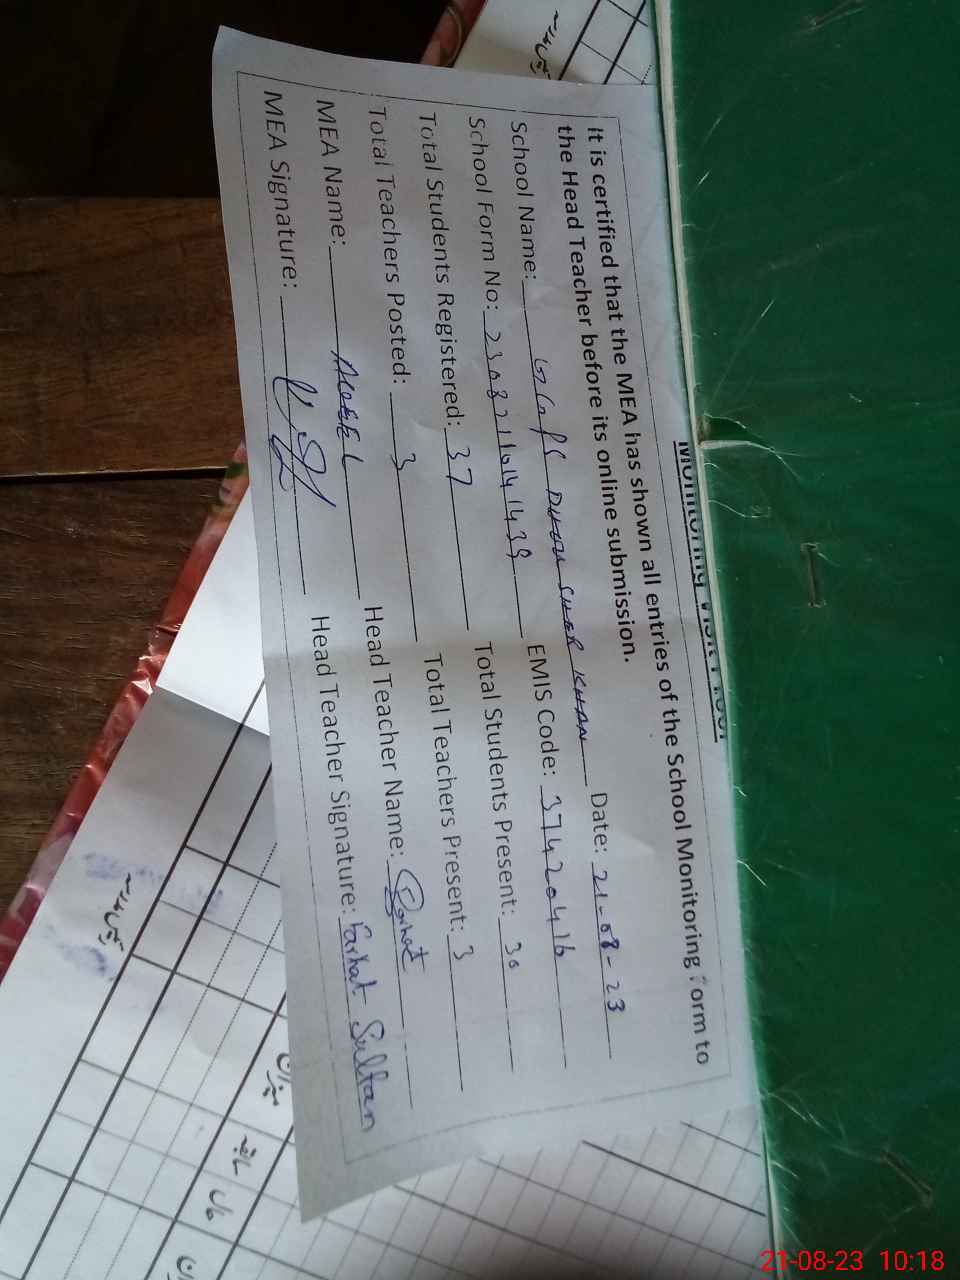 Monitoring Visit Proof
It is certified that the MEA has shown all entries of the School Monitoring Form to
the Head Teacher before its online submission.
School Name: GGPS DHOK SHER KHAN Date: 21-08-23
School Form No: EMIS Code: 37420416
Total Students Registered: 37 Total Students Present: 30
Total Teachers Posted: 3 Total Teachers Present: 3
MEA Name: Head Teacher Name: Farhat
MEA Signature: Head Teacher Signature: Farhat Sultan
میزان
سابقہ
21-08-23 10:18